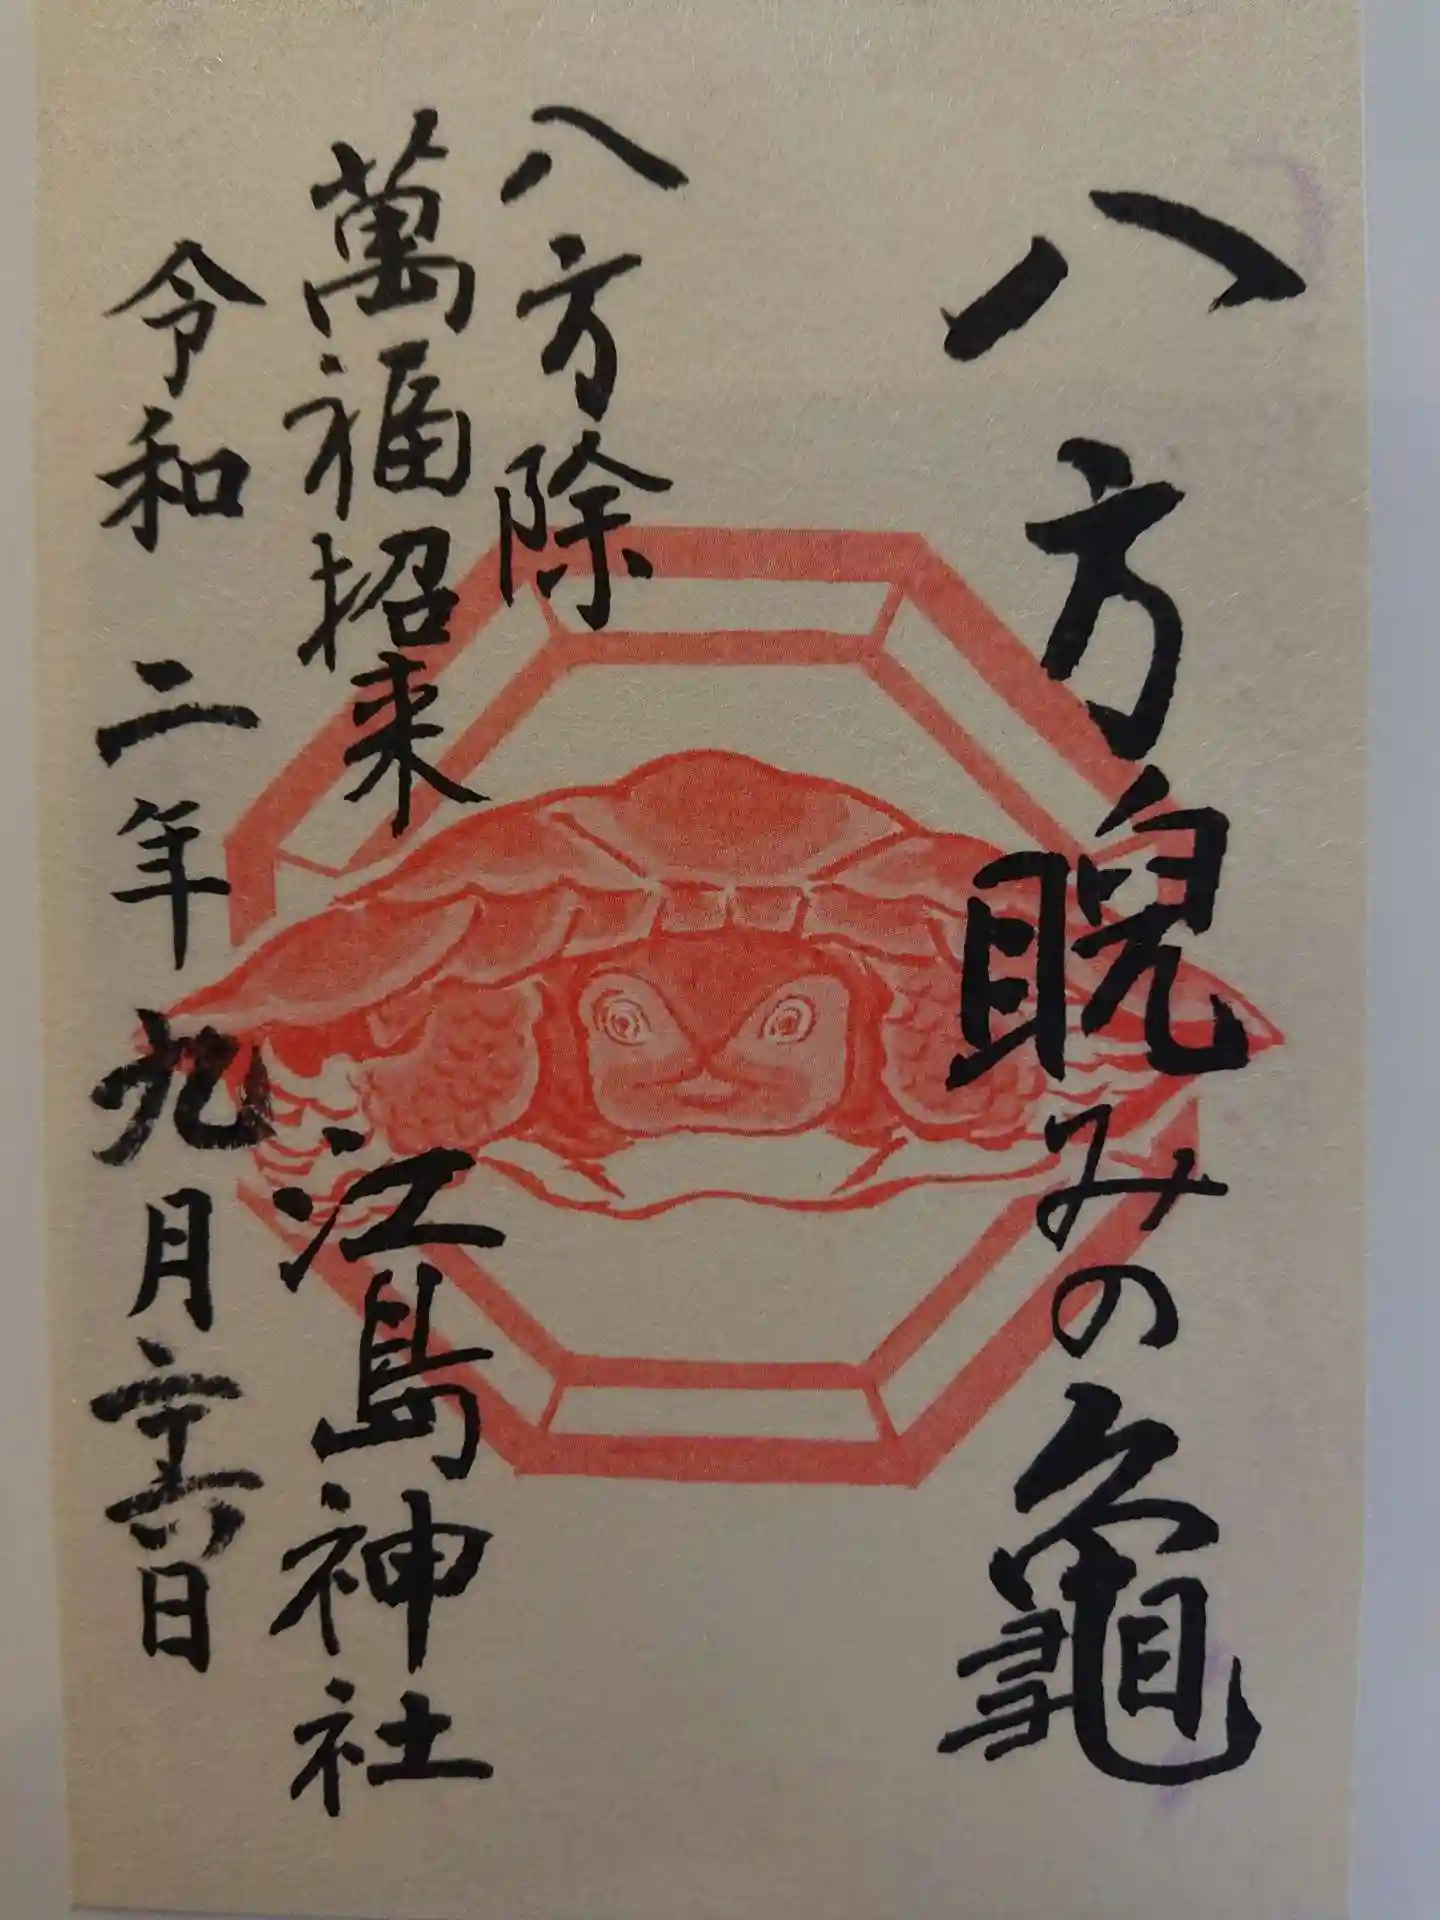 八方睨みの龜
八方除
萬福招来
江島神社
令和二年九月二十六日